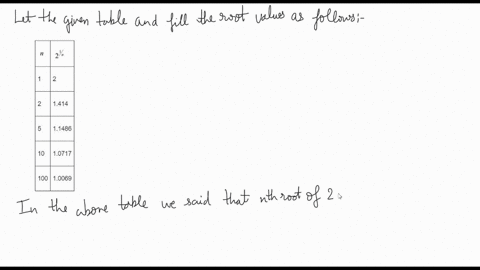 Let the given table and fill the root values as follows:-
n 2^{1/n}
1 2
2 1.414
5 1.1486
10 1.0717
100 1.0069
In the above table we said that nth root of 2